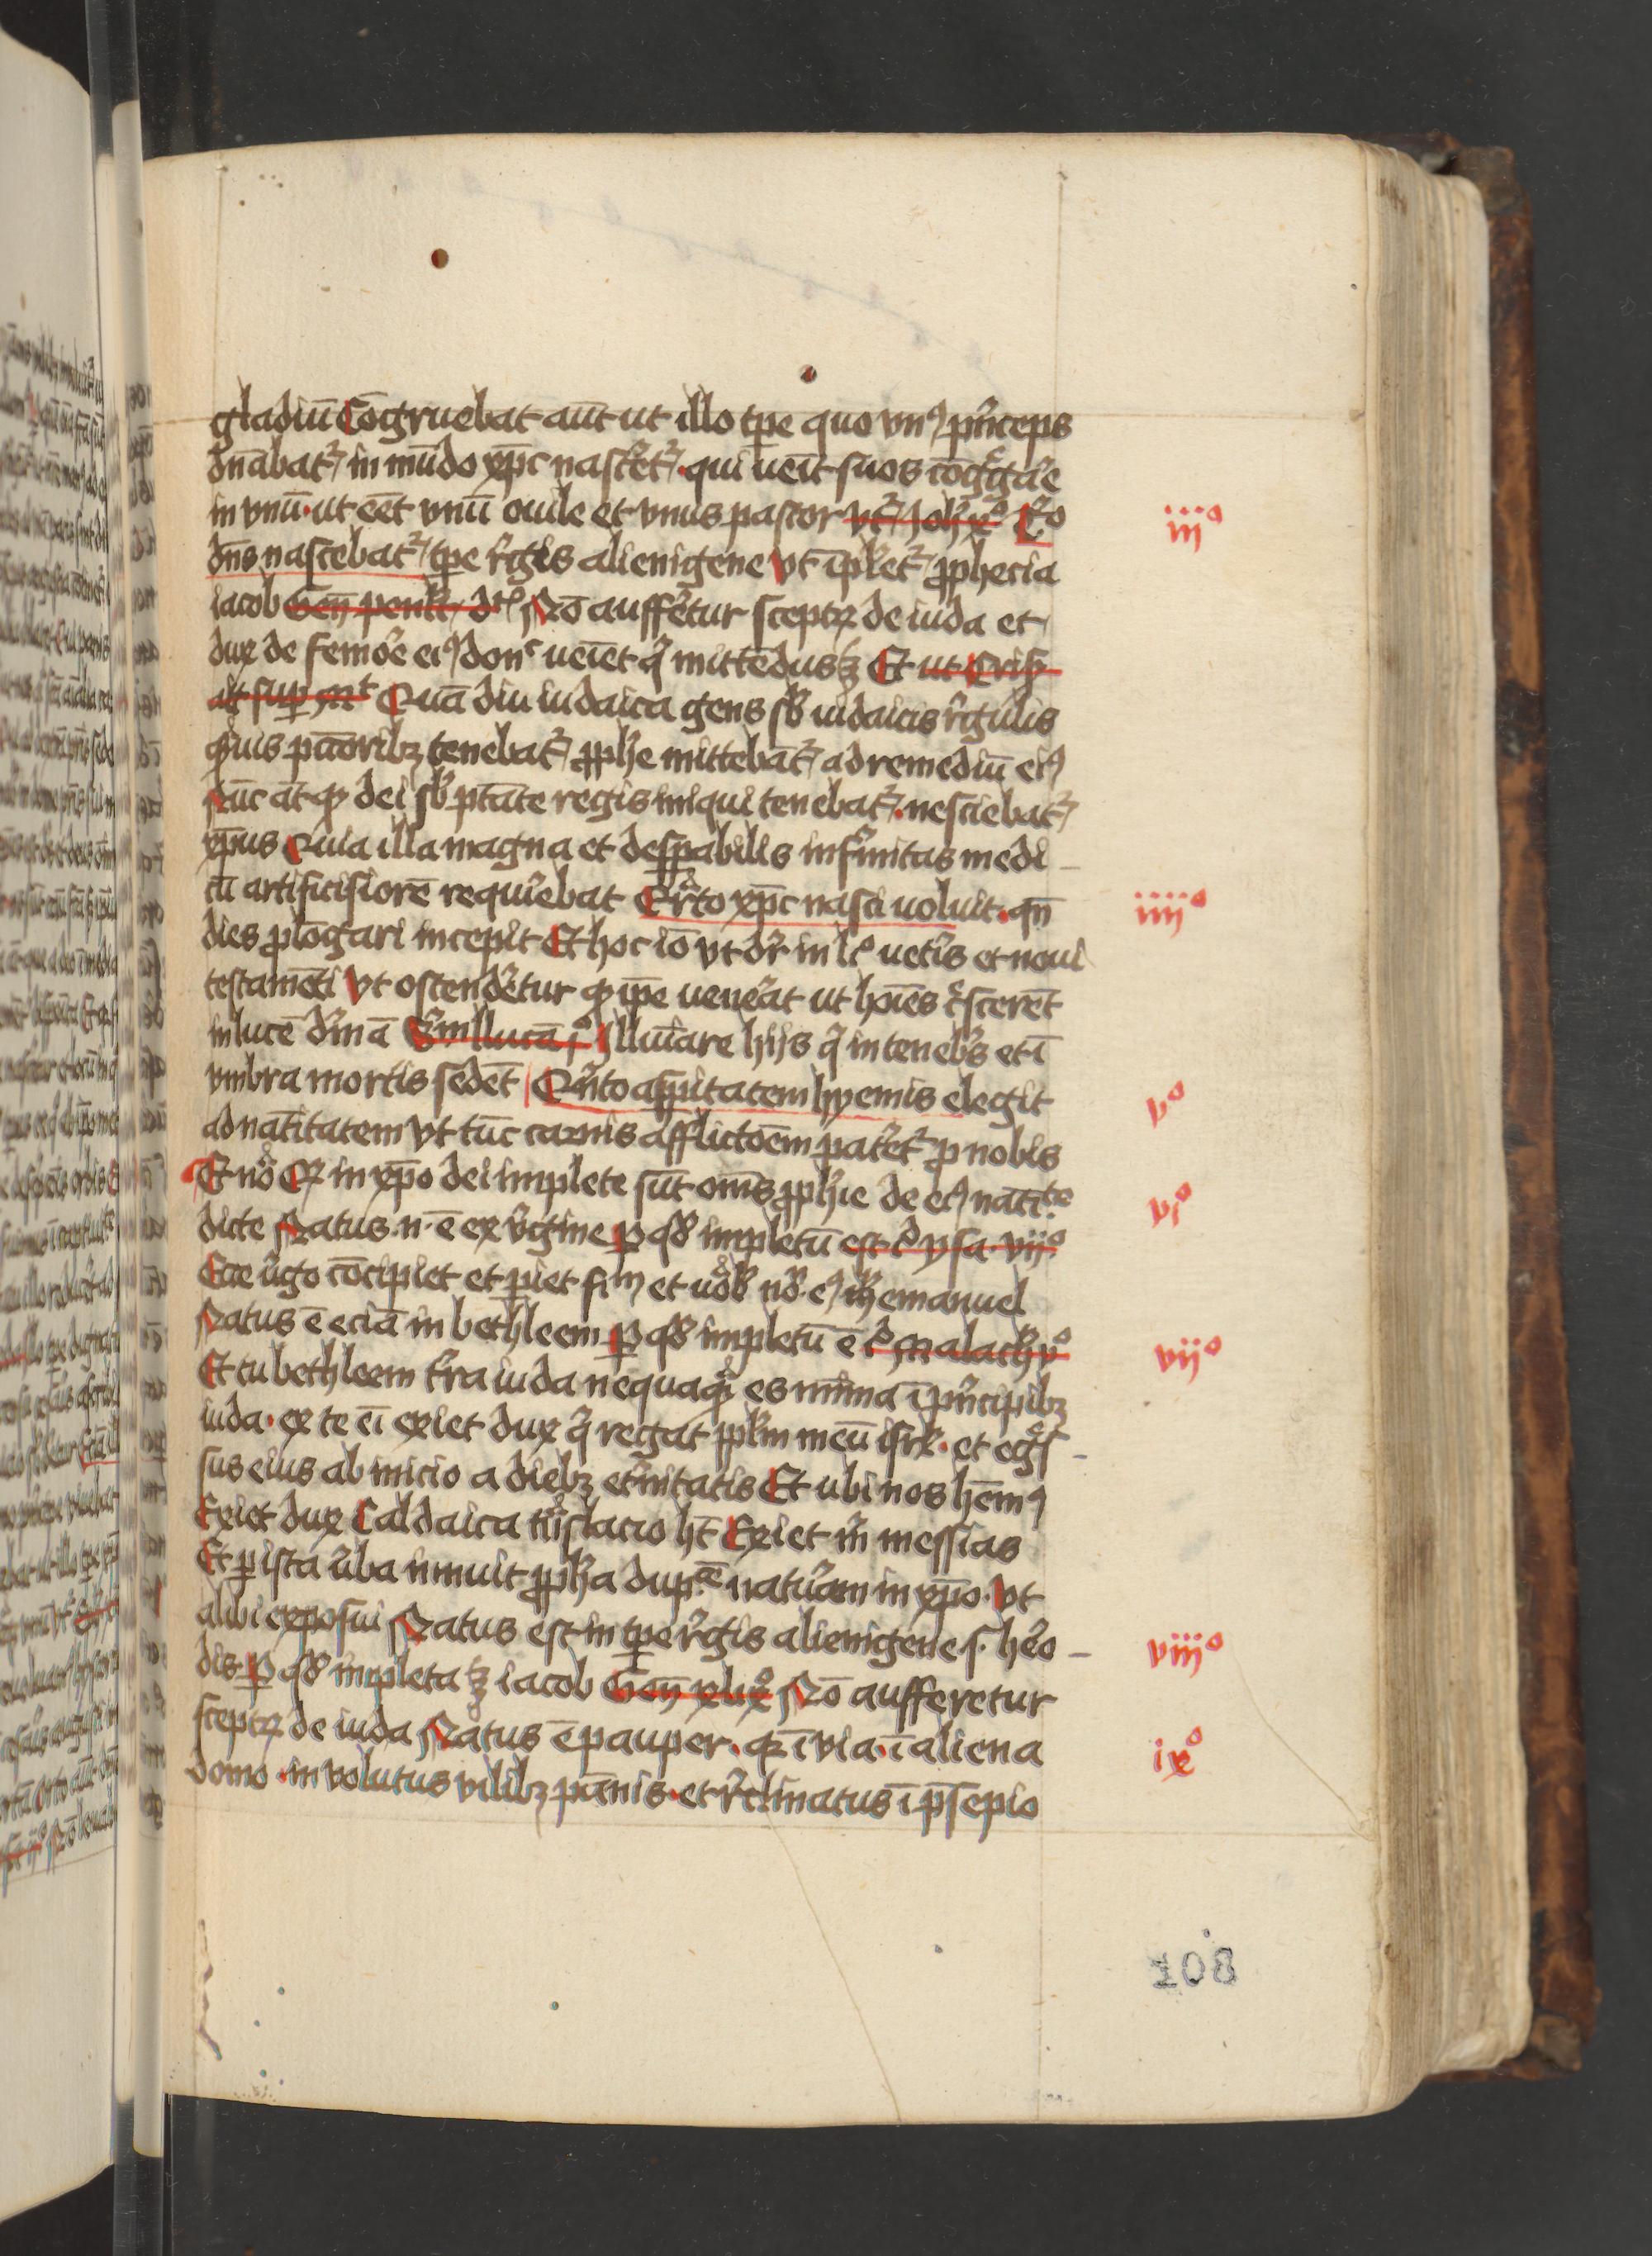 gladiū Cōgruebat aūt ut illo tp̄e quo vnꝰ prīceps
dn̄abatʳ in mūdo xp̄c nascʳetʳ · qui ueīt suos cōgʳgaʳe
in vnū · ut eēt vnū ouile et vnus pastor vtʳ Joh̄ xº Tʳo
dn̄s nascebatʳ tp̄e rʳgis alienigene Vt īplʳetʳ ꝓphecia
iacob Gen̄ penlᵗ drʳ Nō auffʳetur sceptꝝ de iuda et
dux de femoʳe eiꝰ donᶜ ueīet qⁱ mittēdus Et ut Crisº
aīt suꝑ mᵗ Quādiu iudaica gens sb̄ iudaicis rʳgulis
qᵃuis pcc̄oribꝫ tenebatʳ ꝓphe mittebātʳ ad remediū eiꝰ
Nūc āt qꝫ dei sb̄ pt̄ate regis iniqui tenebatʳ · nesciebatʳ
xp̄us Quia illa magna et despabilis infʳmitas medi
cū artificisiorē requiʳebat Qʳrto xp̄c nasci uoluit · qn̄
dies ꝓlōgari incepit Et hoc iō vt drʳ in lº uetʳis et noui
testamēti Vt ostendʳetur qꝫ ip̄e ueneʳat ut hōies cʳscerēt
in lucē diʳnā Vn̄ lluca iº Illuīare hijs qⁱ in tenebʳs et ī
vmbra mortis sedēt Qⁱnto asꝑitatem hyemis elegit
ad natīitatem Vt tūc carnis afflictōem patʳetʳ ꝓ nobis
Et nō Qꝫ in xp̄o dei implete sūt om̄s ꝓphie de eiꝰ natiᵗᵗᵉ
dicte Natus · n · ē ex vʳgine ꝑ qd̄ impletū est · ysa · vijº
Ecce vʳgo cōcipiet et ꝑiet filᵐ et uocʳ no · eiꝰ emanuel
Natus ē eciā in bethleem ꝑ qd̄ impletū ē Malach vº
Et tu bethleem tʳra iuda nequaqᵃ es mīma ī prīcipibꝫ
iuda · ex te eī exiet dux qⁱ regat ppl̄m meū isrl̄ · et egʳs
sus eius ab inicio a diebꝫ etʳnitatis Et ubi nos hēmꝰ
Exiet dux Caldaica trᵃslacio ht̄ Exiet m messias
Et ꝑ ista vʳba innuit ꝓpha dupᶜᵉ natuʳam in xp̄o · Vt
alibi exposui Natus est in tp̄e rʳgis alienigene s · heʳo
dis ꝑ qd̄ impleta iacob Gen̄ xlixº Nō aufferetur
sceptꝝ de iuda Natus ē pauper · qꝫ ī via · ī aliena
domo · involutus vilibꝫ pānis · et rʳclinatus ī p̄sepio
iijº
iiijº
vº
viº
vijº
viijº
ixº
108